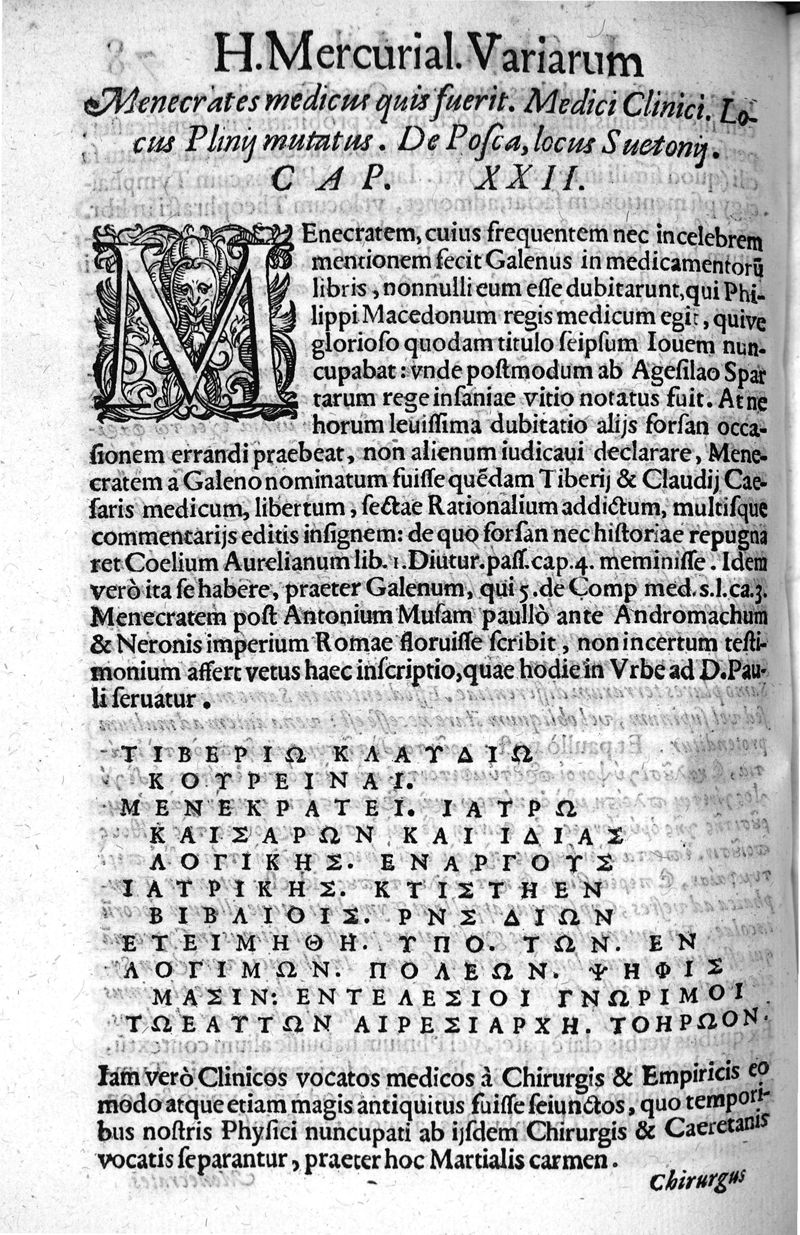 H. Mercurial. Variarum
Menecrates medicus quis fuerit. Medici Clinici. Lo-
cus Plinij mutatus. De Posca, locus Suetonij.
CAP. XXII.
MEnecratem, cuius frequentem nec incelebrem
mentionem fecit Galenus in medicamentorū
libris, nonnulli eum esse dubitarunt, qui Phi-
lippi Macedonum regis medicum egit, quive
glorioso quodam titulo seipsum Iouem nun-
cupabat: vnde postmodum ab Agesilao Spar
tarum rege insaniae vitio notatus fuit. At ne
horum leuissima dubitatio alijs forsan occa-
sionem errandi praebeat, non alienum iudicaui declarare, Mene-
cratem a Galeno nominatum fuisse quēdam Tiberij & Claudij Cae-
saris medicum, libertum, sectae Rationalium addictum, multisque
commentarijs editis insignem: de quo forsan nec historiae repugna
ret Coelium Aurelianum lib. 1. Diutur. pass. cap. 4. meminisse. Idem
verò ita se habere, praeter Galenum, qui 5. de Comp med. s. l. ca. 3.
Menecratem post Antonium Musam paullò ante Andromachum
& Neronis imperium Romae floruisse scribit, non incertum testi-
monium affert vetus haec inscriptio, quae hodie in Vrbe ad D. Pau-
li seruatur.
ΤΙΒΕΡΙΩ ΚΛΑΥΔΙΩ
ΚΟΥΡΕΙΝΑΙ.
ΜΕΝΕΚΡΑΤΕΙ. ΙΑΤΡΩ
ΚΑΙΣΑΡΩΝ ΚΑΙ ΙΔΙΑΣ
ΛΟΓΙΚΗΣ. ΕΝΑΡΓΟΥΣ
ΙΑΤΡΙΚΗΣ. ΚΤΙΣΤΗ ΕΝ
ΒΙΒΛΙΟΙΣ. ΡΝΣ ΔΙΩΝ
ΕΤΕΙΜΗΘΗ. ΥΠΟ. ΤΩΝ. ΕΝ
ΛΟΓΙΜΩΝ. ΠΟΛΕΩΝ. ΨΗΦΙΣ
ΜΑΣΙΝ: ΕΝΤΕΛΕΣΙΟΙ ΓΝΩΡΙΜΟΙ
ΤΩΕΑΥΤΩΝ ΑΙΡΕΣΙΑΡΧΗ. ΤΟΗΡΩΟΝ.
Iam verò Clinicos vocatos medicos à Chirurgis & Empiricis eo
modo atque etiam magis antiquitus fuisse seiunctos, quo tempori-
bus nostris Physici nuncupati ab ijsdem Chirurgis & Caeretanis
vocatis separantur, praeter hoc Martialis carmen.
Chirurgus